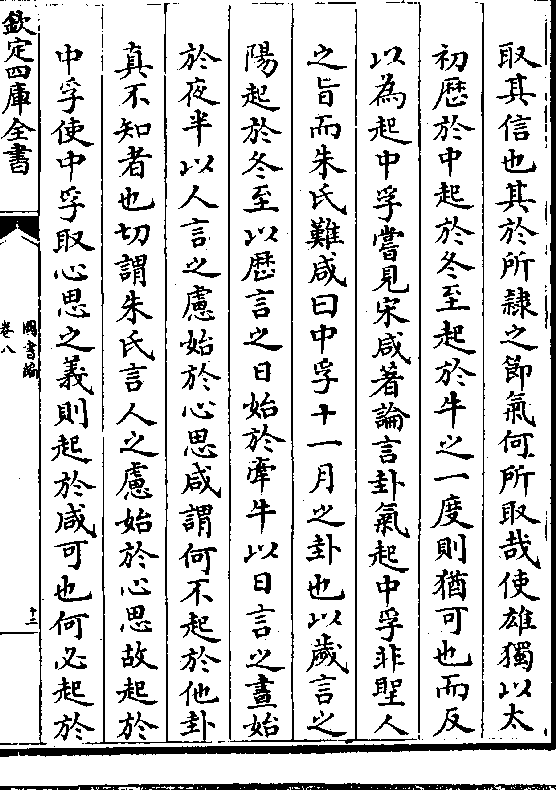 取其信也其於所隷之節氣何所取哉使雄獨以太
初歴於中起於冬至起於牛之一度則猶可也而反
以為起中孚嘗見宋咸著論言卦氣起中孚非聖人
之旨而朱氏難咸曰中孚十一月之卦也以歲言之
陽起於冬至以歴言之日始於牽牛以日言之晝始
於夜半以人言之慮始於心思咸謂何不起於他卦
真不知者也切謂朱氏言人之慮始於心思故起於
中孚使中孚取心思之義則起於咸可也何必起於
欽定四庫全書
圖書編
卷八
十三